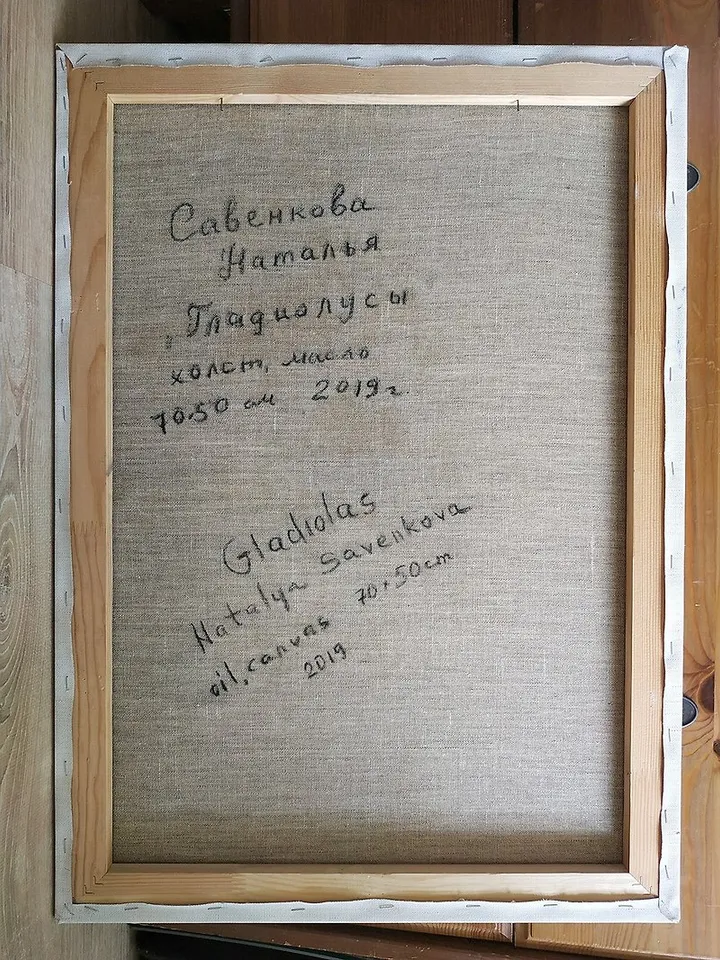 Савенкова
Наталья
"Гладиолусы
холст, масло
70×50 см 2019 г.
Gladiolas
Natalya Savenkova
oil, canvas 70×50cm
2019